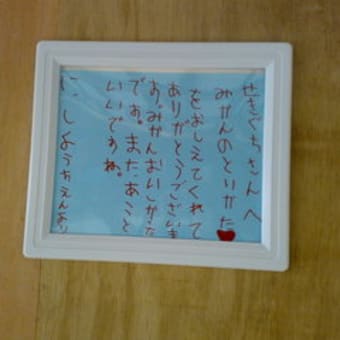 せきぐちさんへ
みかんのとりかた
をおしえてくれて
ありがとうございま
す。みかんおいしかった
です。またあこと
いいですね。
にししようちえんあり